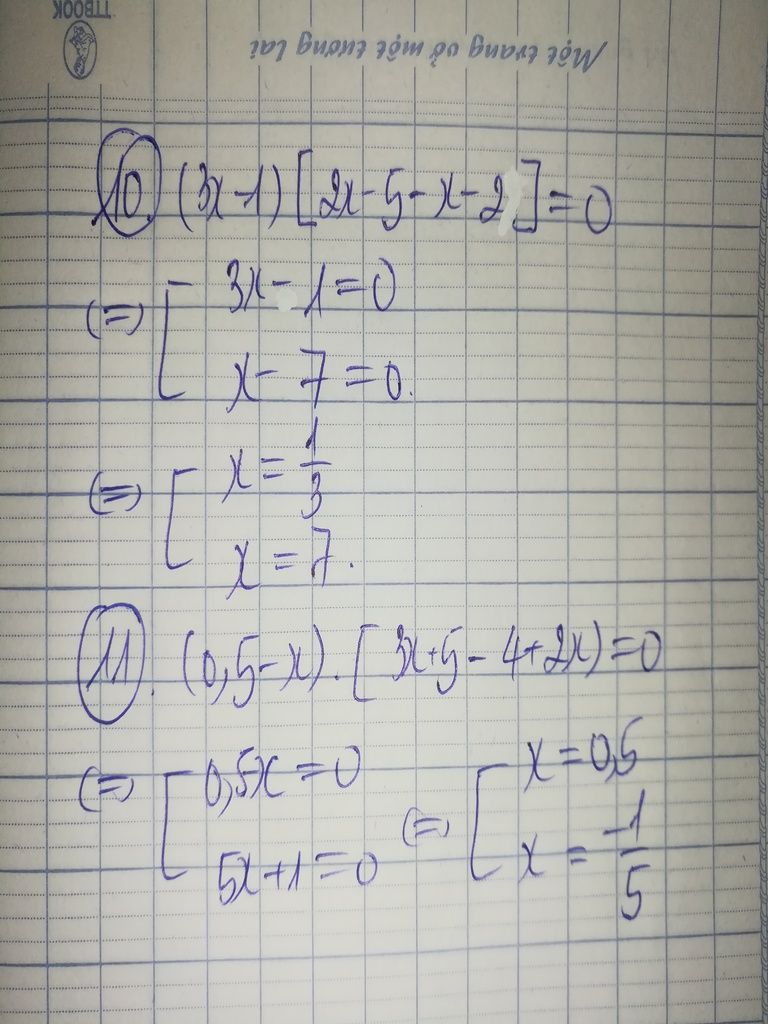 TTBOOK
Một trang vở một tương lai
10. (3x-1)[2x-5-x-2]=0
(=) [ 3x-1=0
x-7=0.
(=) [ x=1/3
x=7.
11. (0,5-x).[3x+5-4+2x)=0
(=) [ 0,5-x=0 (=) [ x=0,5
5x+1=0 x=-1/5